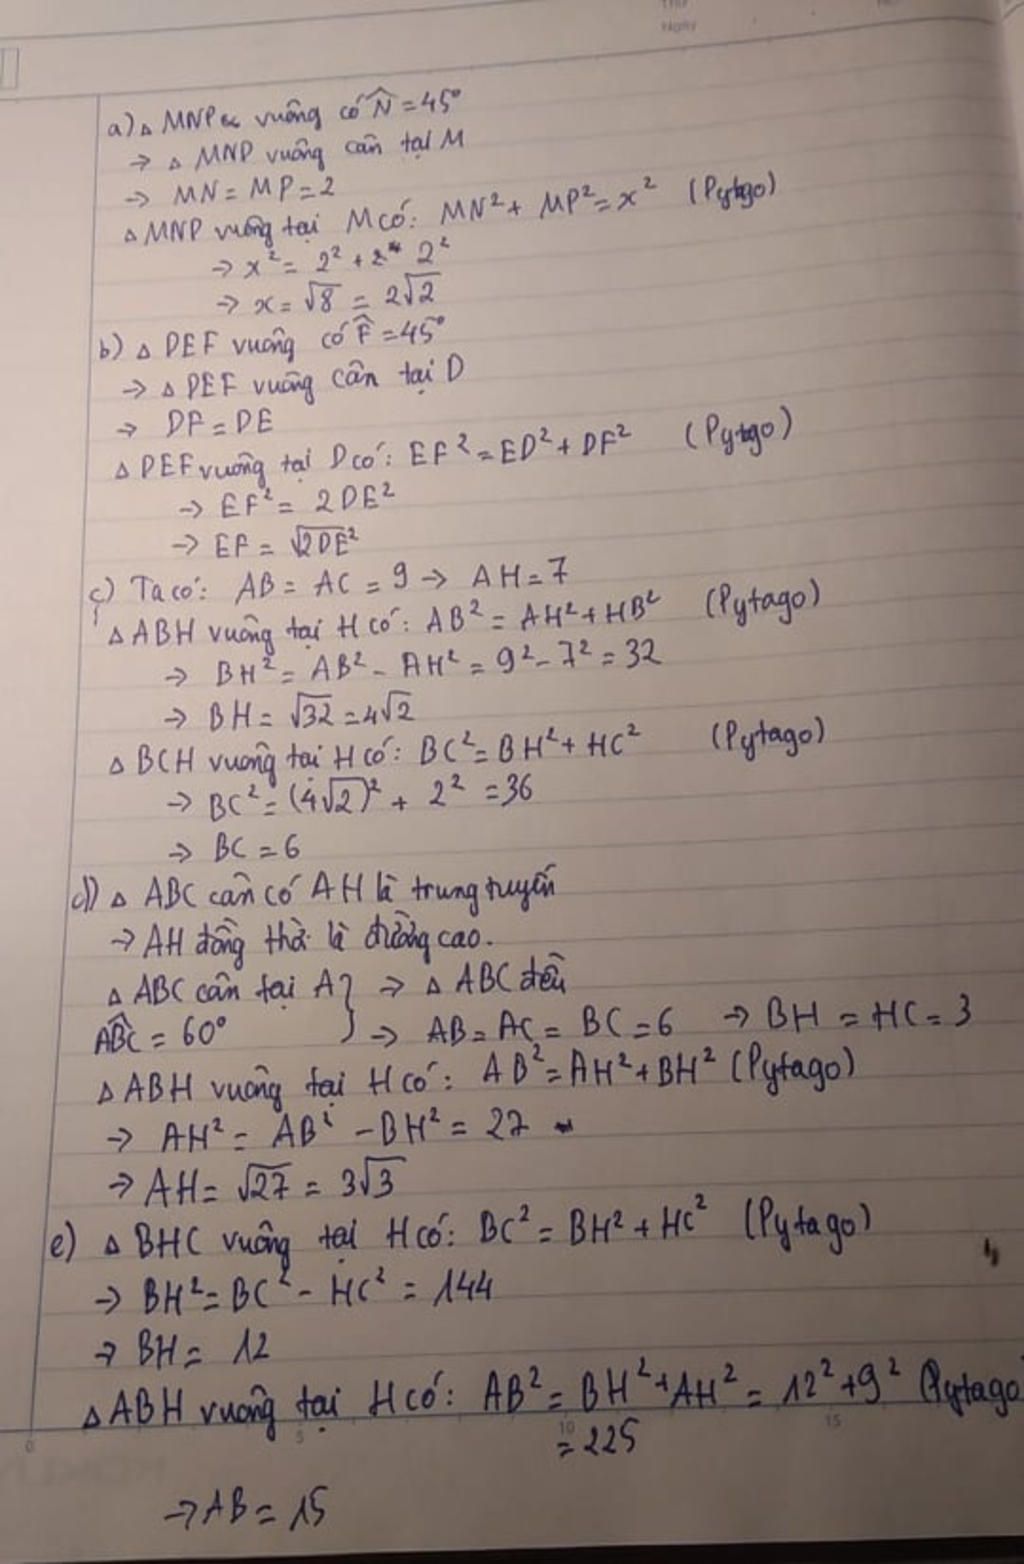 Ngày
a) △ MNP vuông có N̂ = 45°
→ △ MNP vuông cân tại M
→ MN = MP = 2
△ MNP vuông tại M có: MN² + MP² = x² (Pytago)
→ x² = 2² + 2²
→ x = √8 = 2√2
b) △ DEF vuông có F̂ = 45°
→ △ DEF vuông cân tại D
→ DF = DE
△ DEF vuông tại D có: EF² = ED² + DF² (Pytago)
→ EF² = 2DE²
→ EF = √2DE²
c) Ta có: AB = AC = 9 → AH = 7
△ ABH vuông tại H có: AB² = AH² + HB² (Pytago)
→ BH² = AB² - AH² = 9² - 7² = 32
→ BH = √32 = 4√2
△ BCH vuông tại H có: BC² = BH² + HC² (Pytago)
→ BC² = (4√2)² + 2² = 36
→ BC = 6
d) △ ABC cân có AH là trung tuyến
→ AH đồng thời là đường cao.
△ ABC cân tại A } → △ ABC đều
ABC = 60° → AB = AC = BC = 6 → BH = HC = 3
△ ABH vuông tại H có: AB² = AH² + BH² (Pytago)
→ AH² = AB² - BH² = 27
→ AH = √27 = 3√3
e) △ BHC vuông tại H có: BC² = BH² + HC² (Pytago)
→ BH² = BC² - HC² = 144
→ BH = 12
△ ABH vuông tại H có: AB² = BH² + AH² = 12² + 9² (Pytago
0 5 10 15
= 225
→ AB = 15